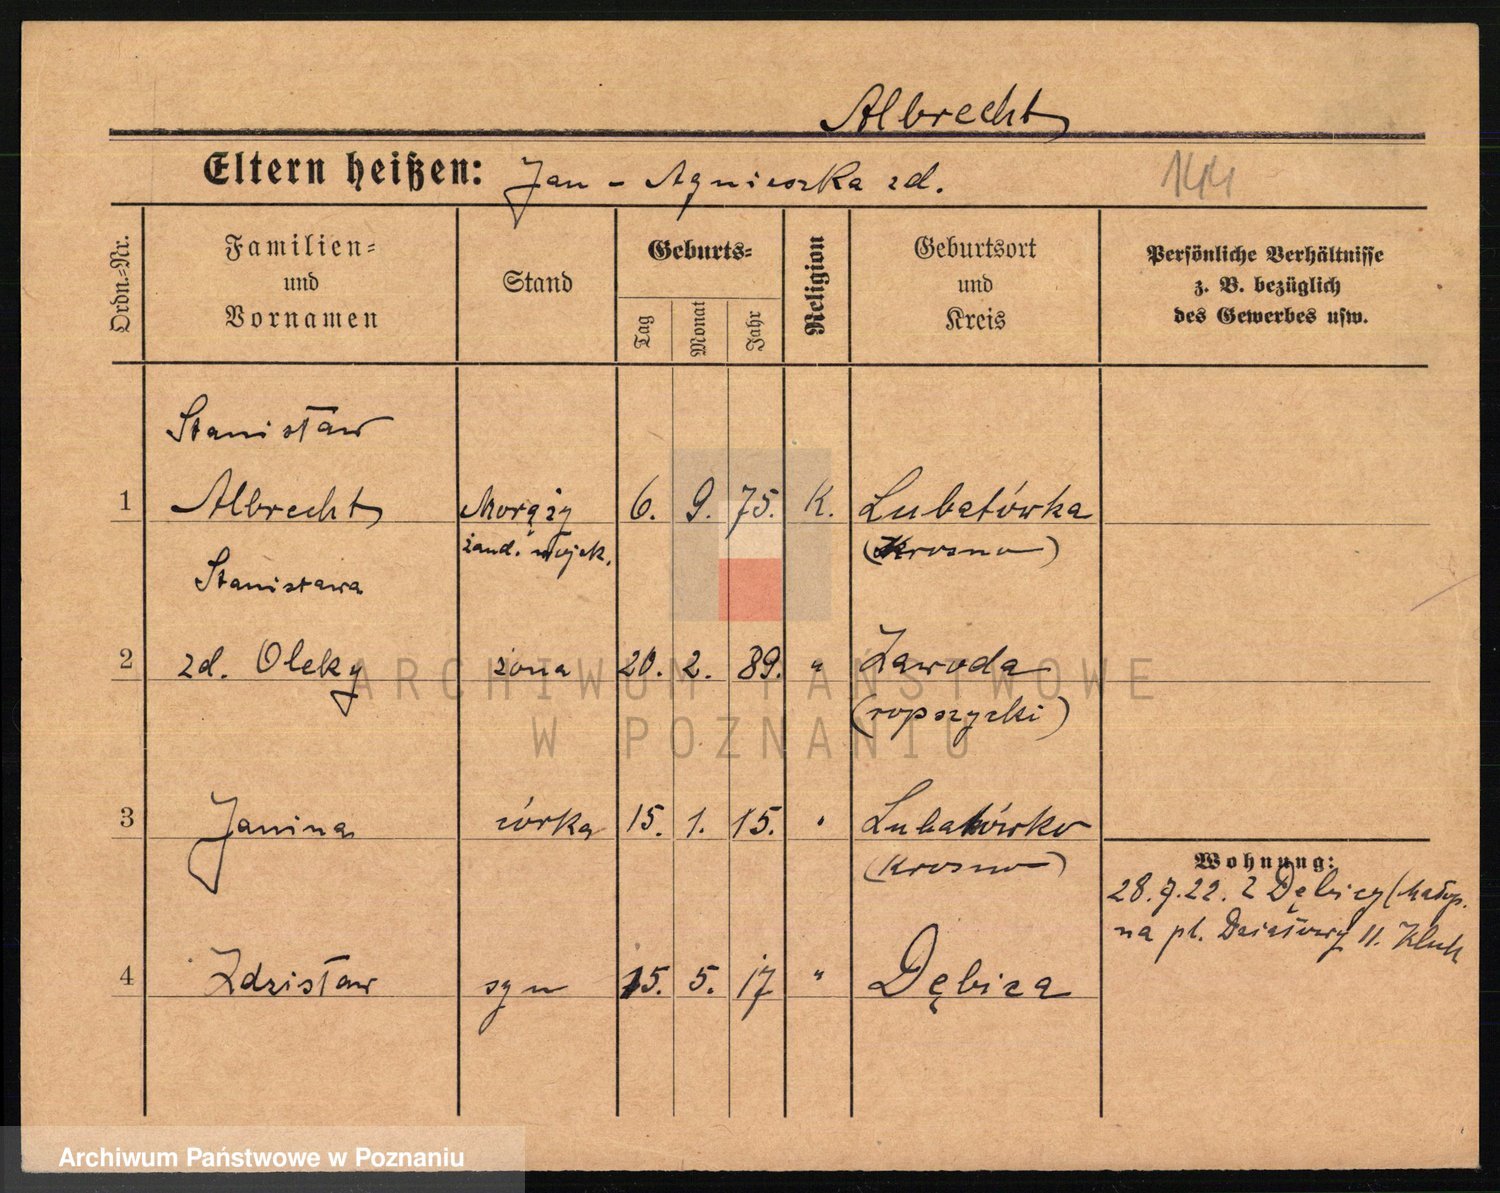 Albrecht
Eltern heißen: Jan - Agnieszka zd.
144
Ordn.-Nr.
Familien-
und
Vornamen
Stand
Geburts-
Tag
Monat
Jahr
Religion
Geburtsort
und
Kreis
Persönliche Verhältnisse
z. B. bezüglich
des Gewerbes usw.
Stanisław
1 Albrecht 6. 9. 75. K. Lubatówka
żand. wojsk. (Krosno)
Stanisława
2 zd. Oleksy żona 20. 2. 89. " Zawada
(ropszycki)
3 Janina córka 15. 1. 15. " Lubatówka
(Krosno)
Wohnung:
28.7.22. z Dębicy (Małop.
na pl. Działowy 11.
4 Zdzisław syn 15. 5. 17 " Dębica
ARCHIWUM PAŃSTWOWE
W POZNANIU
Archiwum Państwowe w Poznaniu